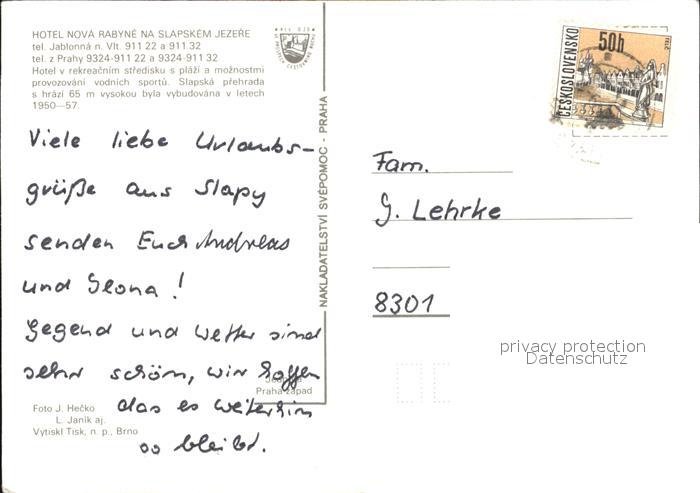 HOTEL NOVÁ RABYNĚ NA SLAPSKÉM JEZEŘE
tel. Jablonná n. Vlt. 911 22 a 911 32
tel. z Prahy 9324-911 22 a 9324-911 32
Hotel v rekreačním středisku s pláží a možnostmi
provozování vodních sportů. Slapská přehrada
s hrází 65 m vysokou byla vybudována v letech
1950—57.
Viele liebe Urlaubs-
grüße aus Slapy
senden Euch Andreas
und Ilona!
Gegend und Wetter sind
sehr schön, wir hoffen
das es weiterhin
so bleibt.
Praha západ
Foto J. Hečko
L. Janík aj.
Vytiskl Tisk, n. p., Brno
NAKLADATELSTVÍ SVÉPOMOC - PRAHA
ČESKOSLOVENSKO
50h
TELČ
Fam.
G. Lehrke
8301
privacy protection
Datenschutz